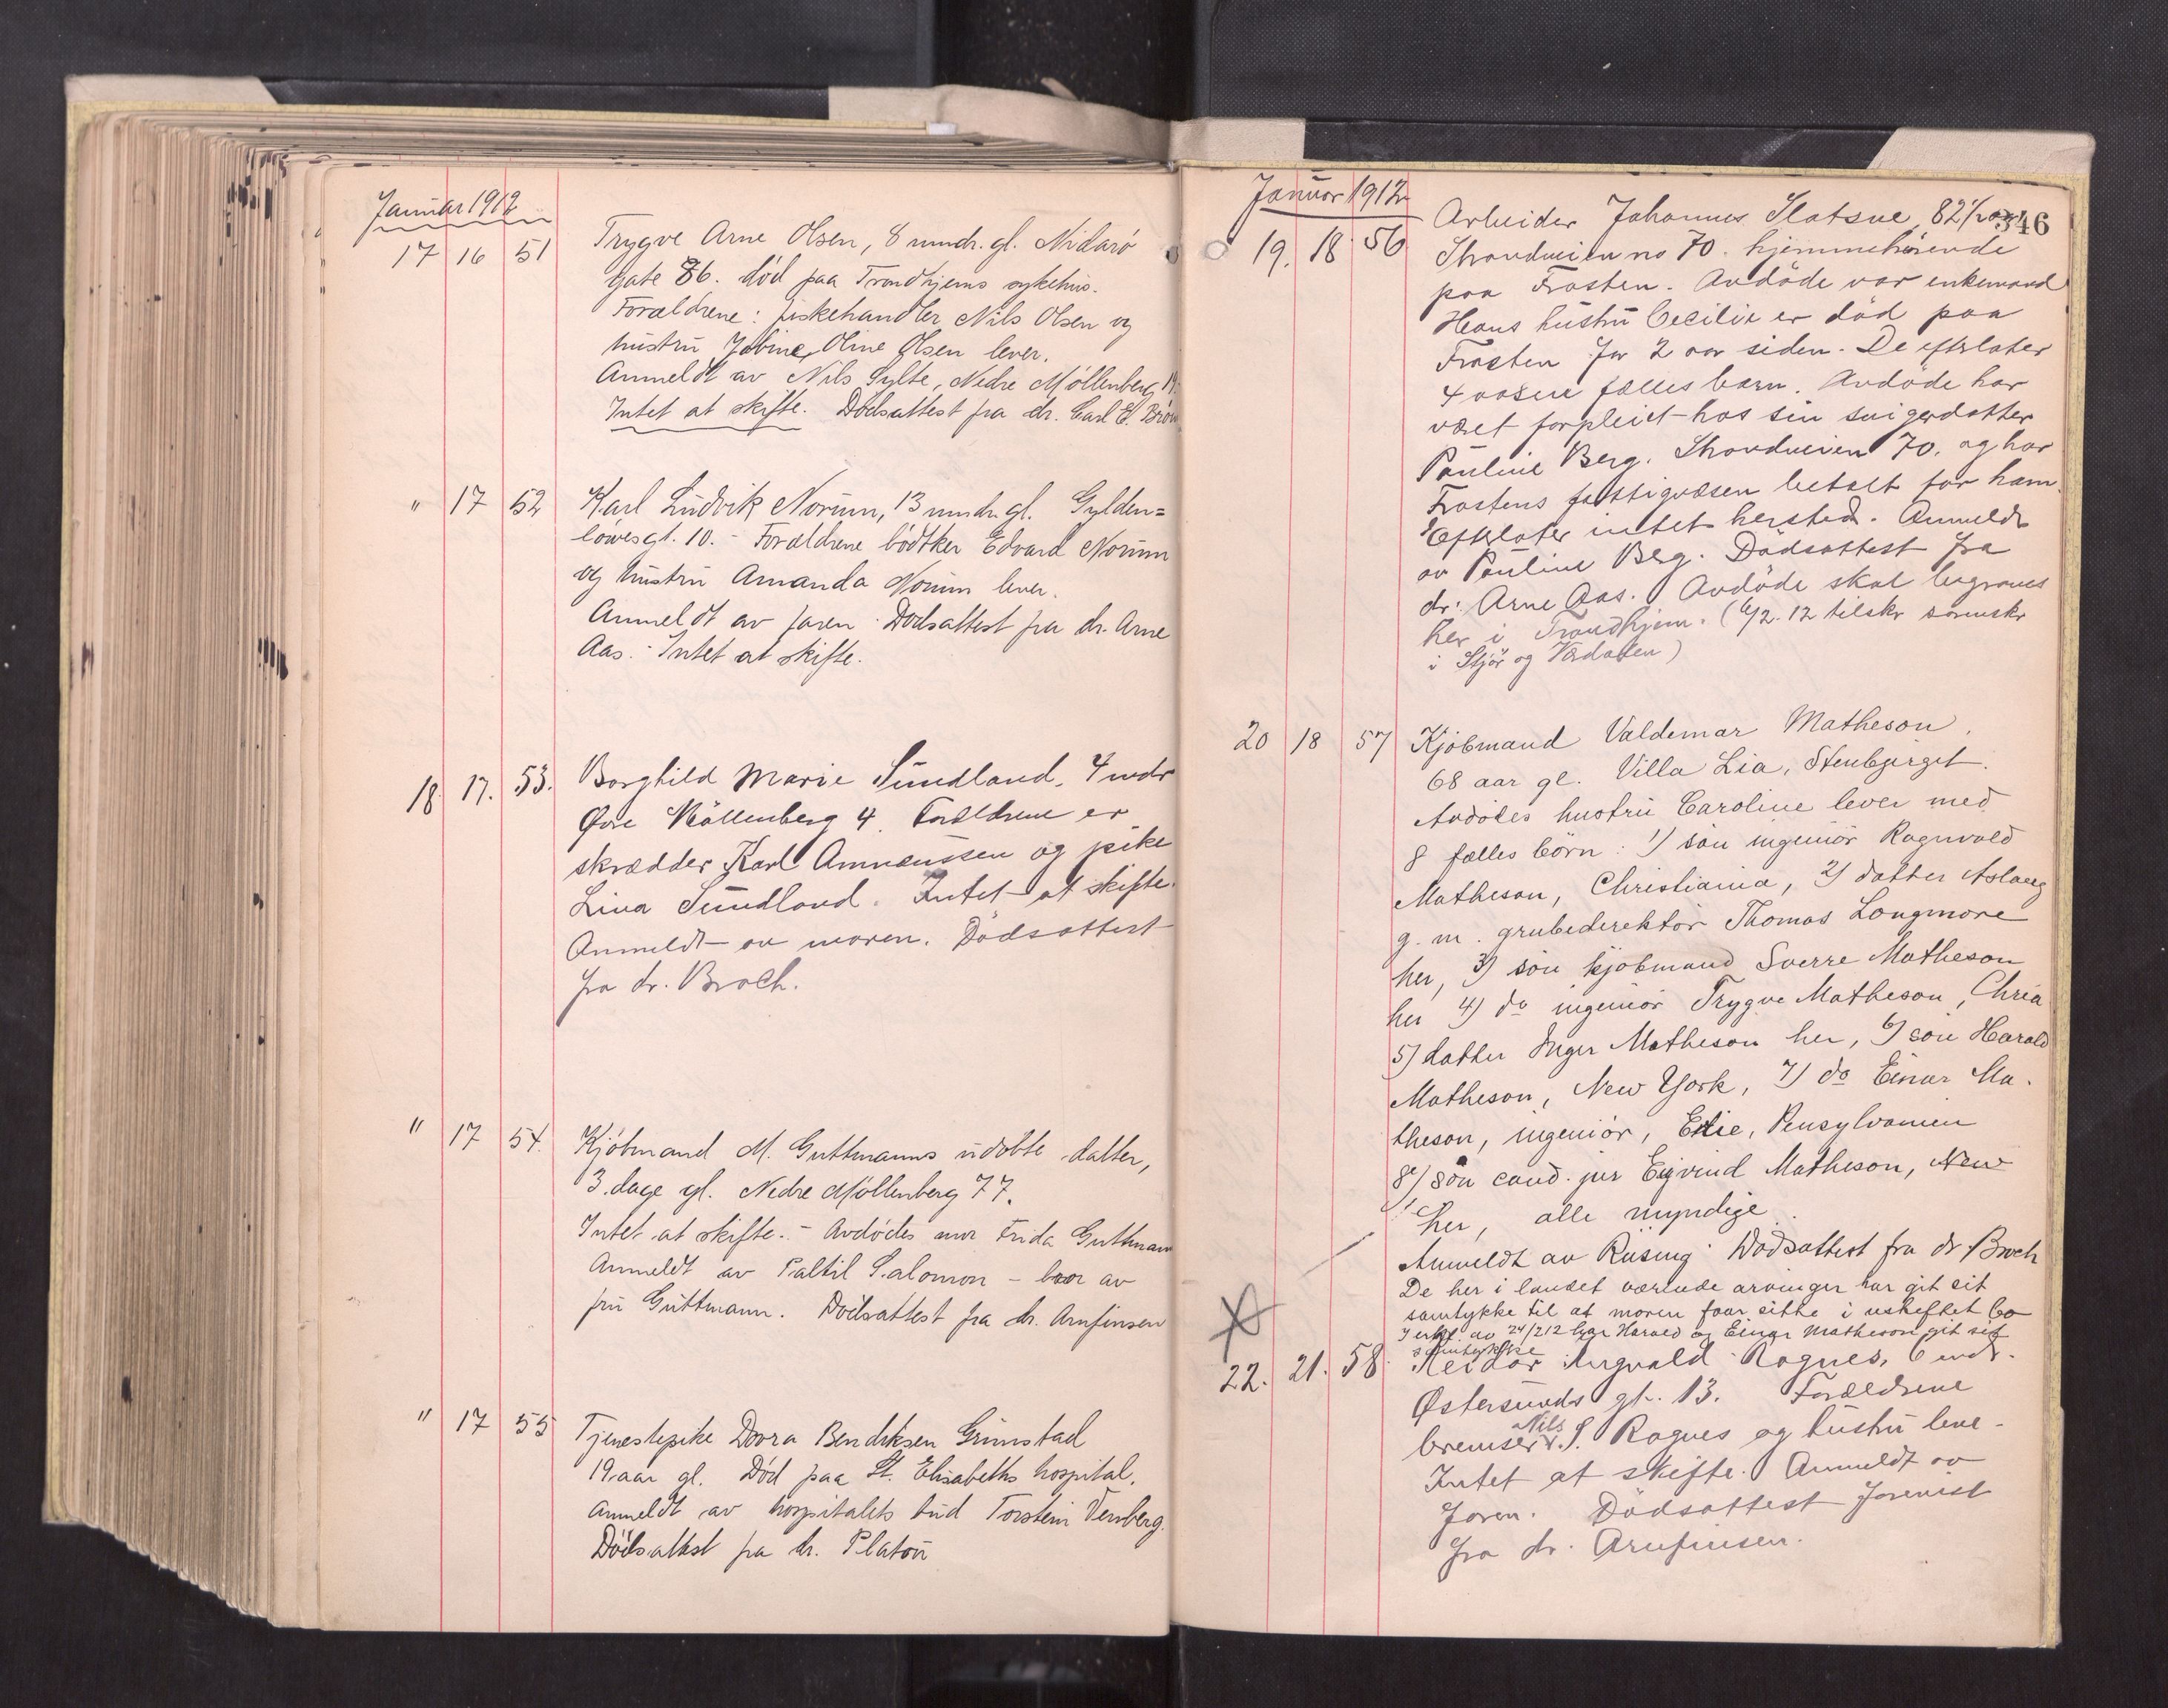 Januar 1912
17 16 51 Trygve Arne Olsen, 8 mndr. gl. Nidarö
gate 86. död paa Trondhjems sykehus.
Forældrene: fiskehandler Nils Olsen og
hustru Jobine Oline Olsen lever.
Anmeldt av Nils Sylte, Nedre Möllenberg
Intet at skifte. Dödsattest fra dr. Carl E.
" 17 52 Karl Ludvik Norum, 13 mndr. gl. Gylden=
löwesgt. 10. - Forældrene bödtker Edvard Norum
og hustru Amanda Norum lever.
Anmeldt av faren. Dödsattest fra dr. Arne
Aas. - Intet at skifte.
18. 17. 53. Borghild Marie Sundland, 4 mdr
Øvre Möllenberg 4. Forældrene er
skrædder Karl Amnæussen og pike
Lina Sundland. Intet at skifte.
Anmeldt av moren. Dödsattest
fra dr. Broch.
" 17 54. Kjöbmand M. Guttmanns udöbte datter,
3. dage gl. Nedre Möllenberg 77.
Intet at skifte. - Avdödes mor Frida Guttmann
Anmeldt av Paltil Salomon - bror av
fru Guttmann. Dödsattest fra dr. Arnfinsen
" 17 55 Tjenestepike Dovra Bendiksen Grimstad
19 aar gl. Död paa St. Elisabeths hospital.
Anmeldt av hospitalets bud Torstein Venberg.
Dödsattest fra dr. Platou
Januar 1912
346
19. 18 56 Arbeider Johannes Slatsve, 82 1/2 aar
Strandveien no 70. hjemmehörende
paa Frosten. Avdöde var enkemand
Hans hustru Cecilie er död paa
Frosten for 2 aar siden. De efterlater
4 voksne fælles barn. Avdöde har
været forpleiet hos sin svigerdatter
Pauline Berg. Strandveien 70. og har
Frostens fattigvæsen betalt for ham.
Efterlater intet hersteds. Anmeldt
av Pauline Berg. Dödsattest fra
dr. Arne Aas. Avdöde skal begraves
her i Trondhjem. (6/2. 12 tilskr sorenskr
i Stjör og Værdalen)
20 18 57 Kjöbmand Valdemar Matheson.
68 aar gl. Villa Lia, Stenbjerget.
Avdödes hustru Caroline lever med
8 fælles börn: 1) sön ingeniör Ragnvald
Matheson, Christiania, 2) datter Aslaug
g. m. grubedirektör Thomas Longmore
her, 3) sön kjöbmand Sverre Matheson
her 4) do ingeniör Trygve Matheson, Chria
5) datter Inger Matheson her, 6) sön Harald
Matheson, New York, 7) do Einar Ma-
theson, ingeniör, Erie, Pensylvanien
8) sön cand. jur Eyvind Matheson, New
her, alle myndige.
Anmeldt av Rusing. Dödsattest fra dr Broch
De her i landet værende arvinger har git sit
samtykke til at moren faar sitte i uskiftet bo
I erkl. av 24/2 12 har Harald og Einar Matheson git sit
samtykke
22. 21. 58. Reidar Ingvald Rognes, 6 mdr.
Østersunds gt. 13. Forældrene
Nils
bremser N. S. Rognes og hustru leve.
Intet at skifte. Anmeldt av
faren. Dödsattest forevist
fra dr. Arnfinsen.